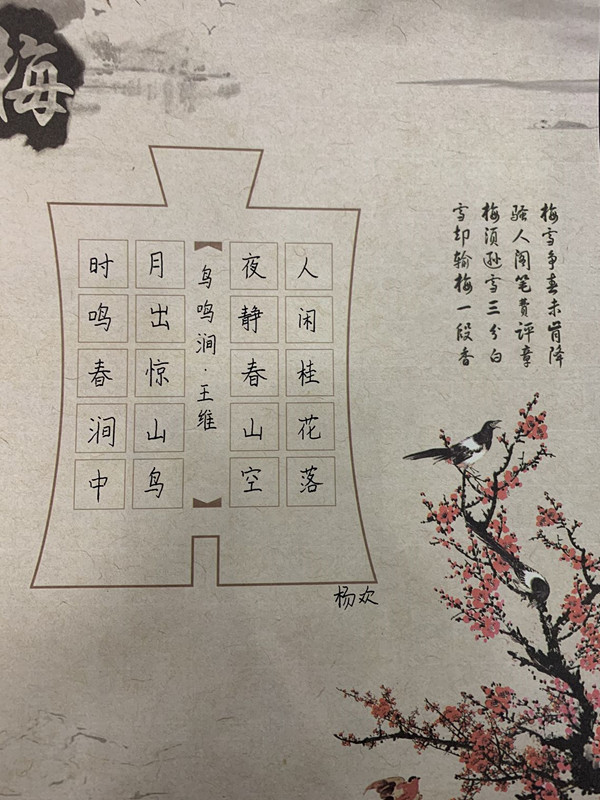 梅雪争春未肯降
骚人阁笔费评章
梅须逊雪三分白
雪却输梅一段香
人闲桂花落
夜静春山空
鸟鸣涧·王维
月出惊山鸟
时鸣春涧中
杨欢